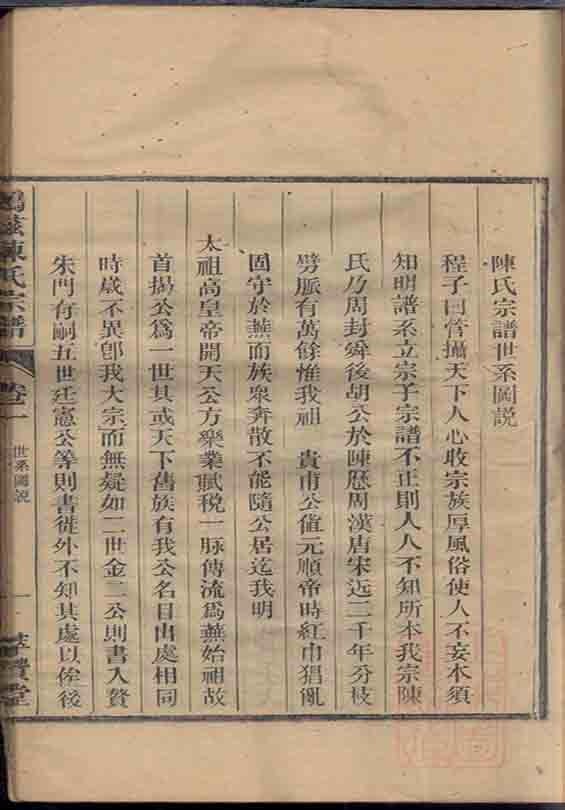 陳氏宗譜世系圖説
程子曰管攝天下人心收宗族厚風俗使人不妄本須
知明譜系立宗子宗譜不正則人人不知所本我宗陳
氏乃周封舜後胡公於陳歷周漢唐宋远二千年分枝
劈脈有萬餘惟我祖 貴甫公值元順帝時紅巾猖亂
固守於蕪而族衆奔散不能隨公居迄我明
太祖高皇帝開天公方樂業賦税一脉傳流爲蕪始祖故
首揚公爲一世其或天下舊族有我公名目出處相同
時歲不異卽我大宗而無疑如二世金二公則書入贅
朱門存嗣五世廷憲公等則書徙外不知其處以俟後
鳩兹陳氏宗譜
卷一
世系圖説
一